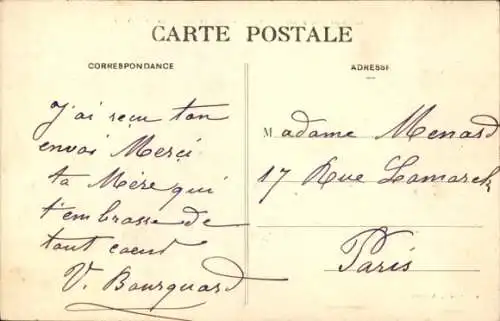 CARTE POSTALE
CORRESPONDANCE
J'ai reçu ton
envoi Merci
ta Mère qui
t'embrasse de
tout coeur
V. Bourquard
ADRESSE
Madame Menard
17 Rue Lamarck
Paris